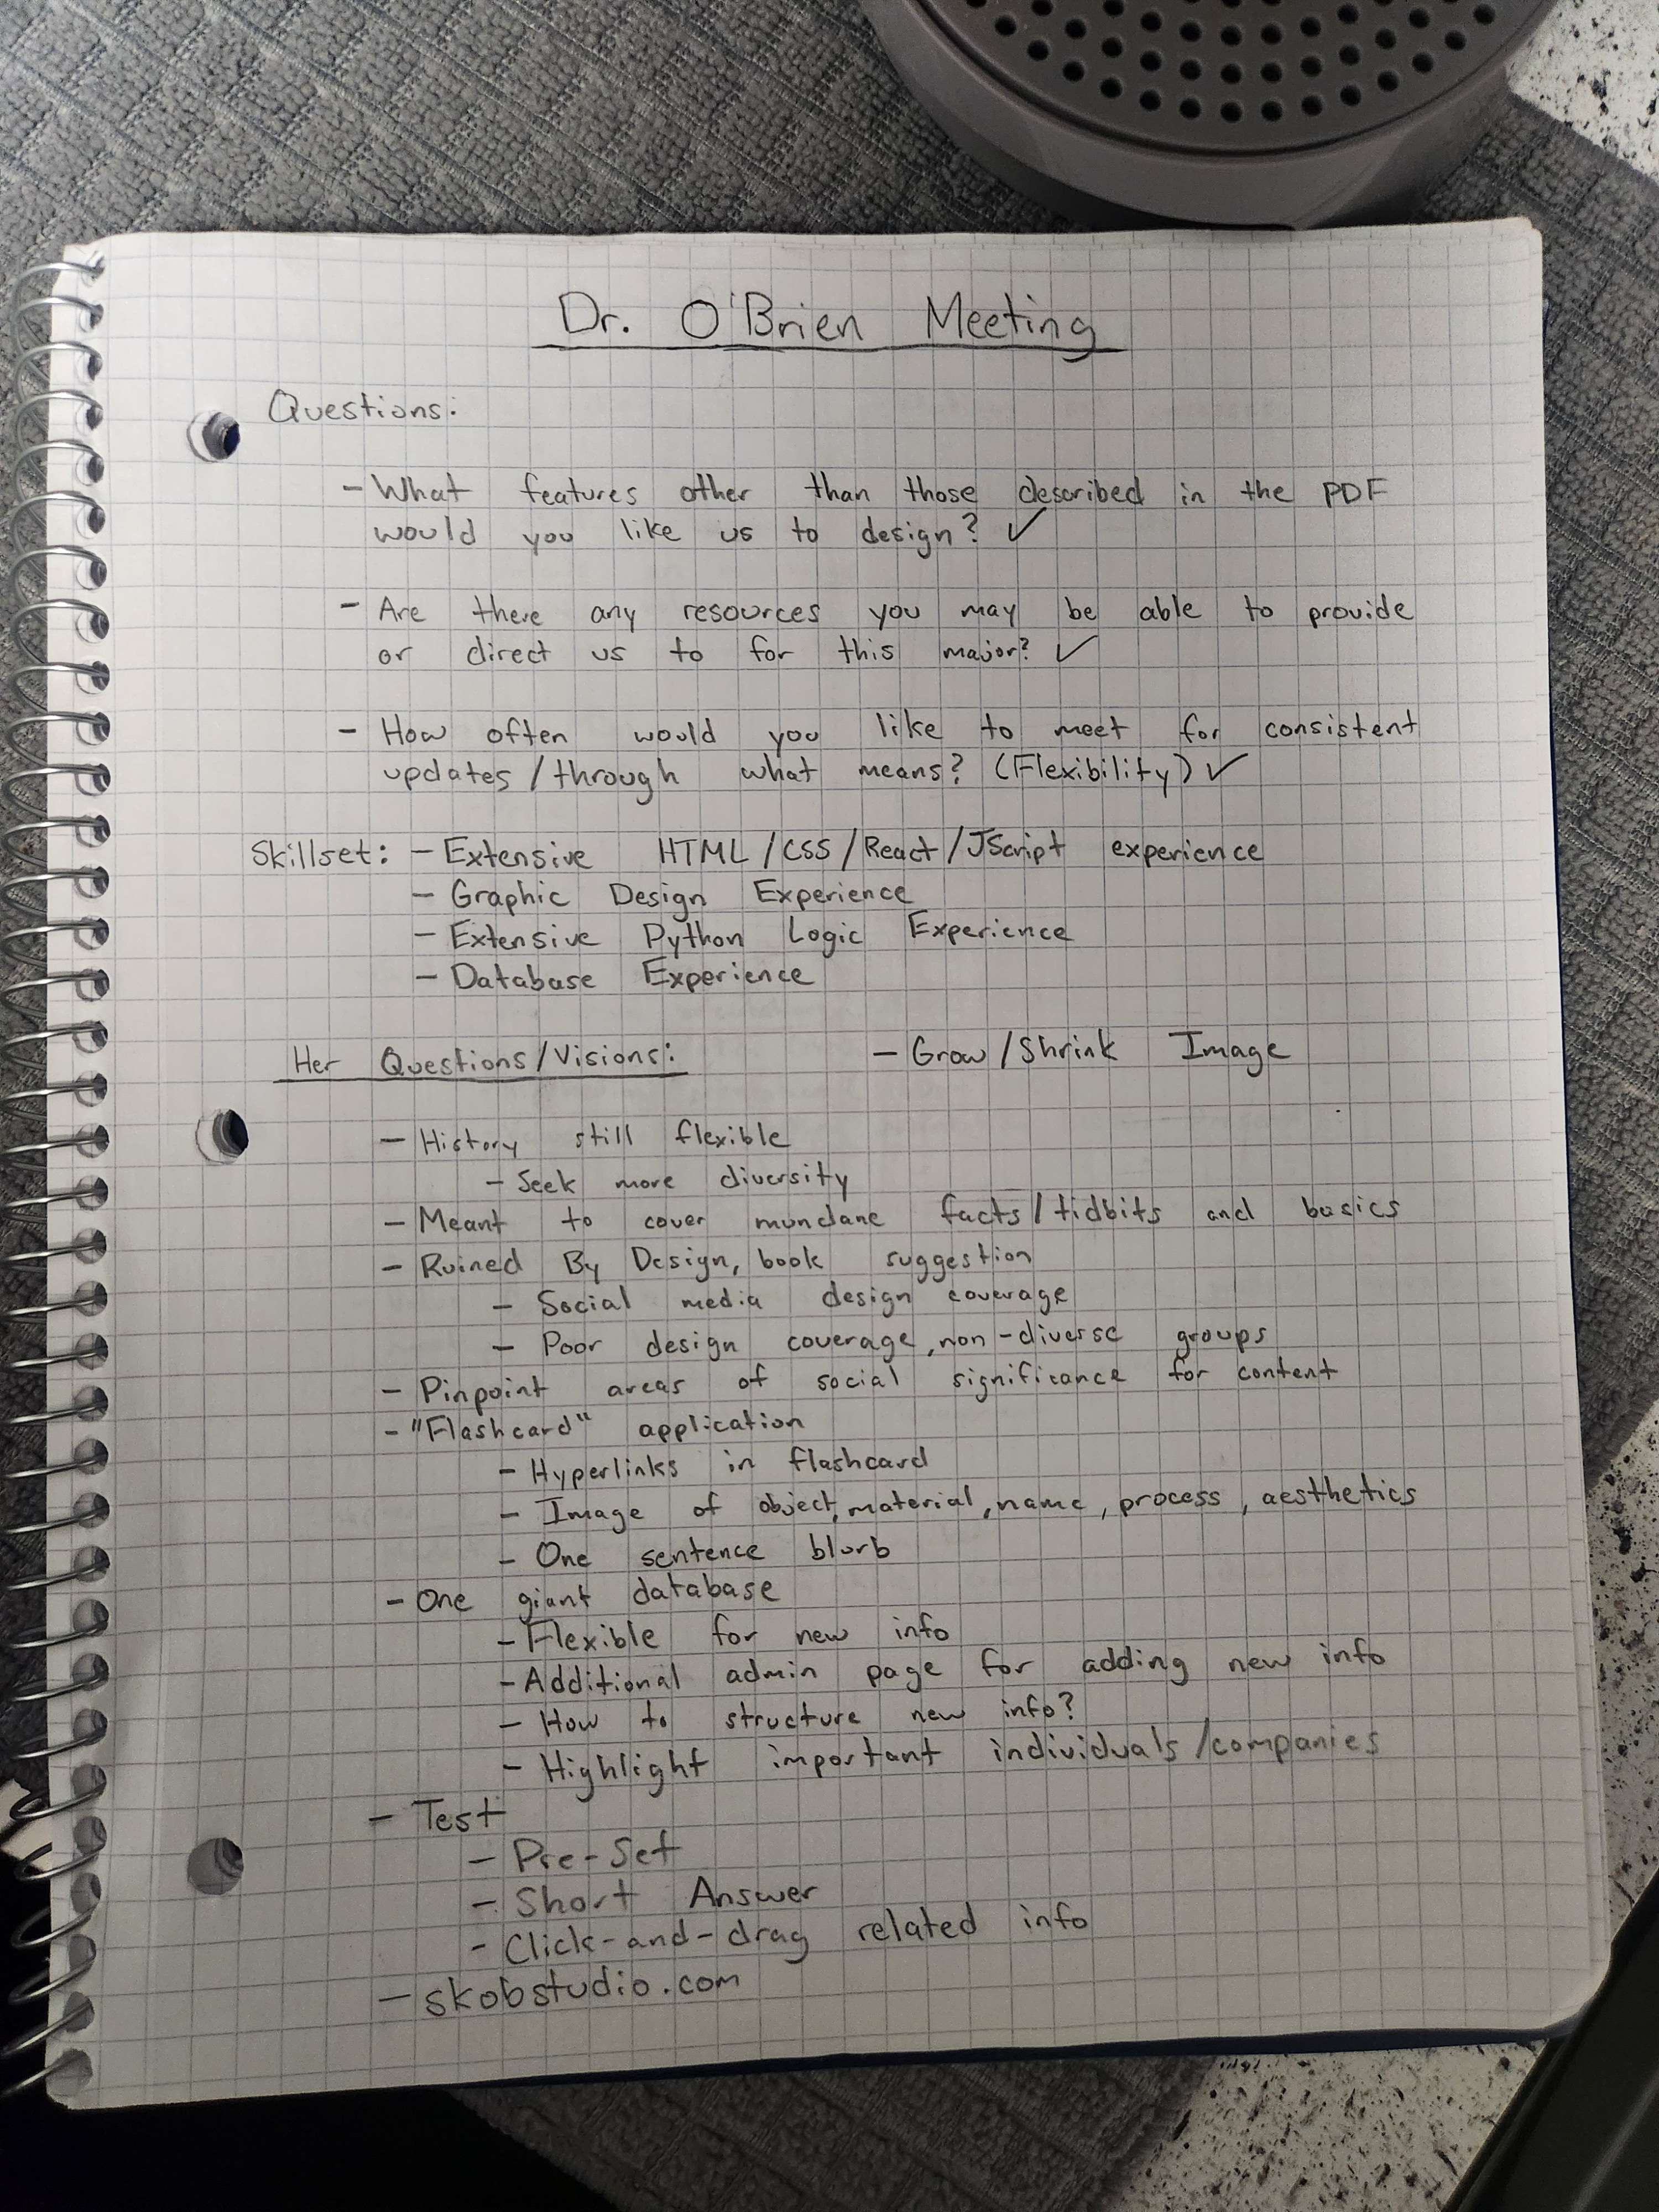 Dr. O'Brien Meeting
Questions:
- What features other than those described in the PDF
would you like us to design? ✓
- Are there any resources you may be able to provide
or direct us to for this major? ✓
- How often would you like to meet for consistent
updates/through what means? (Flexibility) ✓
Skillset: - Extensive HTML/CSS/React/JScript experience
- Graphic Design Experience
- Extensive Python Logic Experience
- Database Experience
Her Questions/Visions: - Grow/Shrink Image
- History still flexible
- Seek more diversity
- Meant to cover mundane facts/tidbits and basics
- Ruined By Design, book suggestion
- Social media design coverage
- Poor design coverage, non-diverse groups
- Pinpoint areas of social significance for content
- "Flashcard" application
- Hyperlinks in flashcard
- Image of object, material, name, process, aesthetics
- One sentence blurb
- One giant database
- Flexible for new info
- Additional admin page for adding new info
- How to structure new info?
- Highlight important individuals/companies
- Test
- Pre-Set
- Short Answer
- Click-and-drag related info
- skobstudio.com